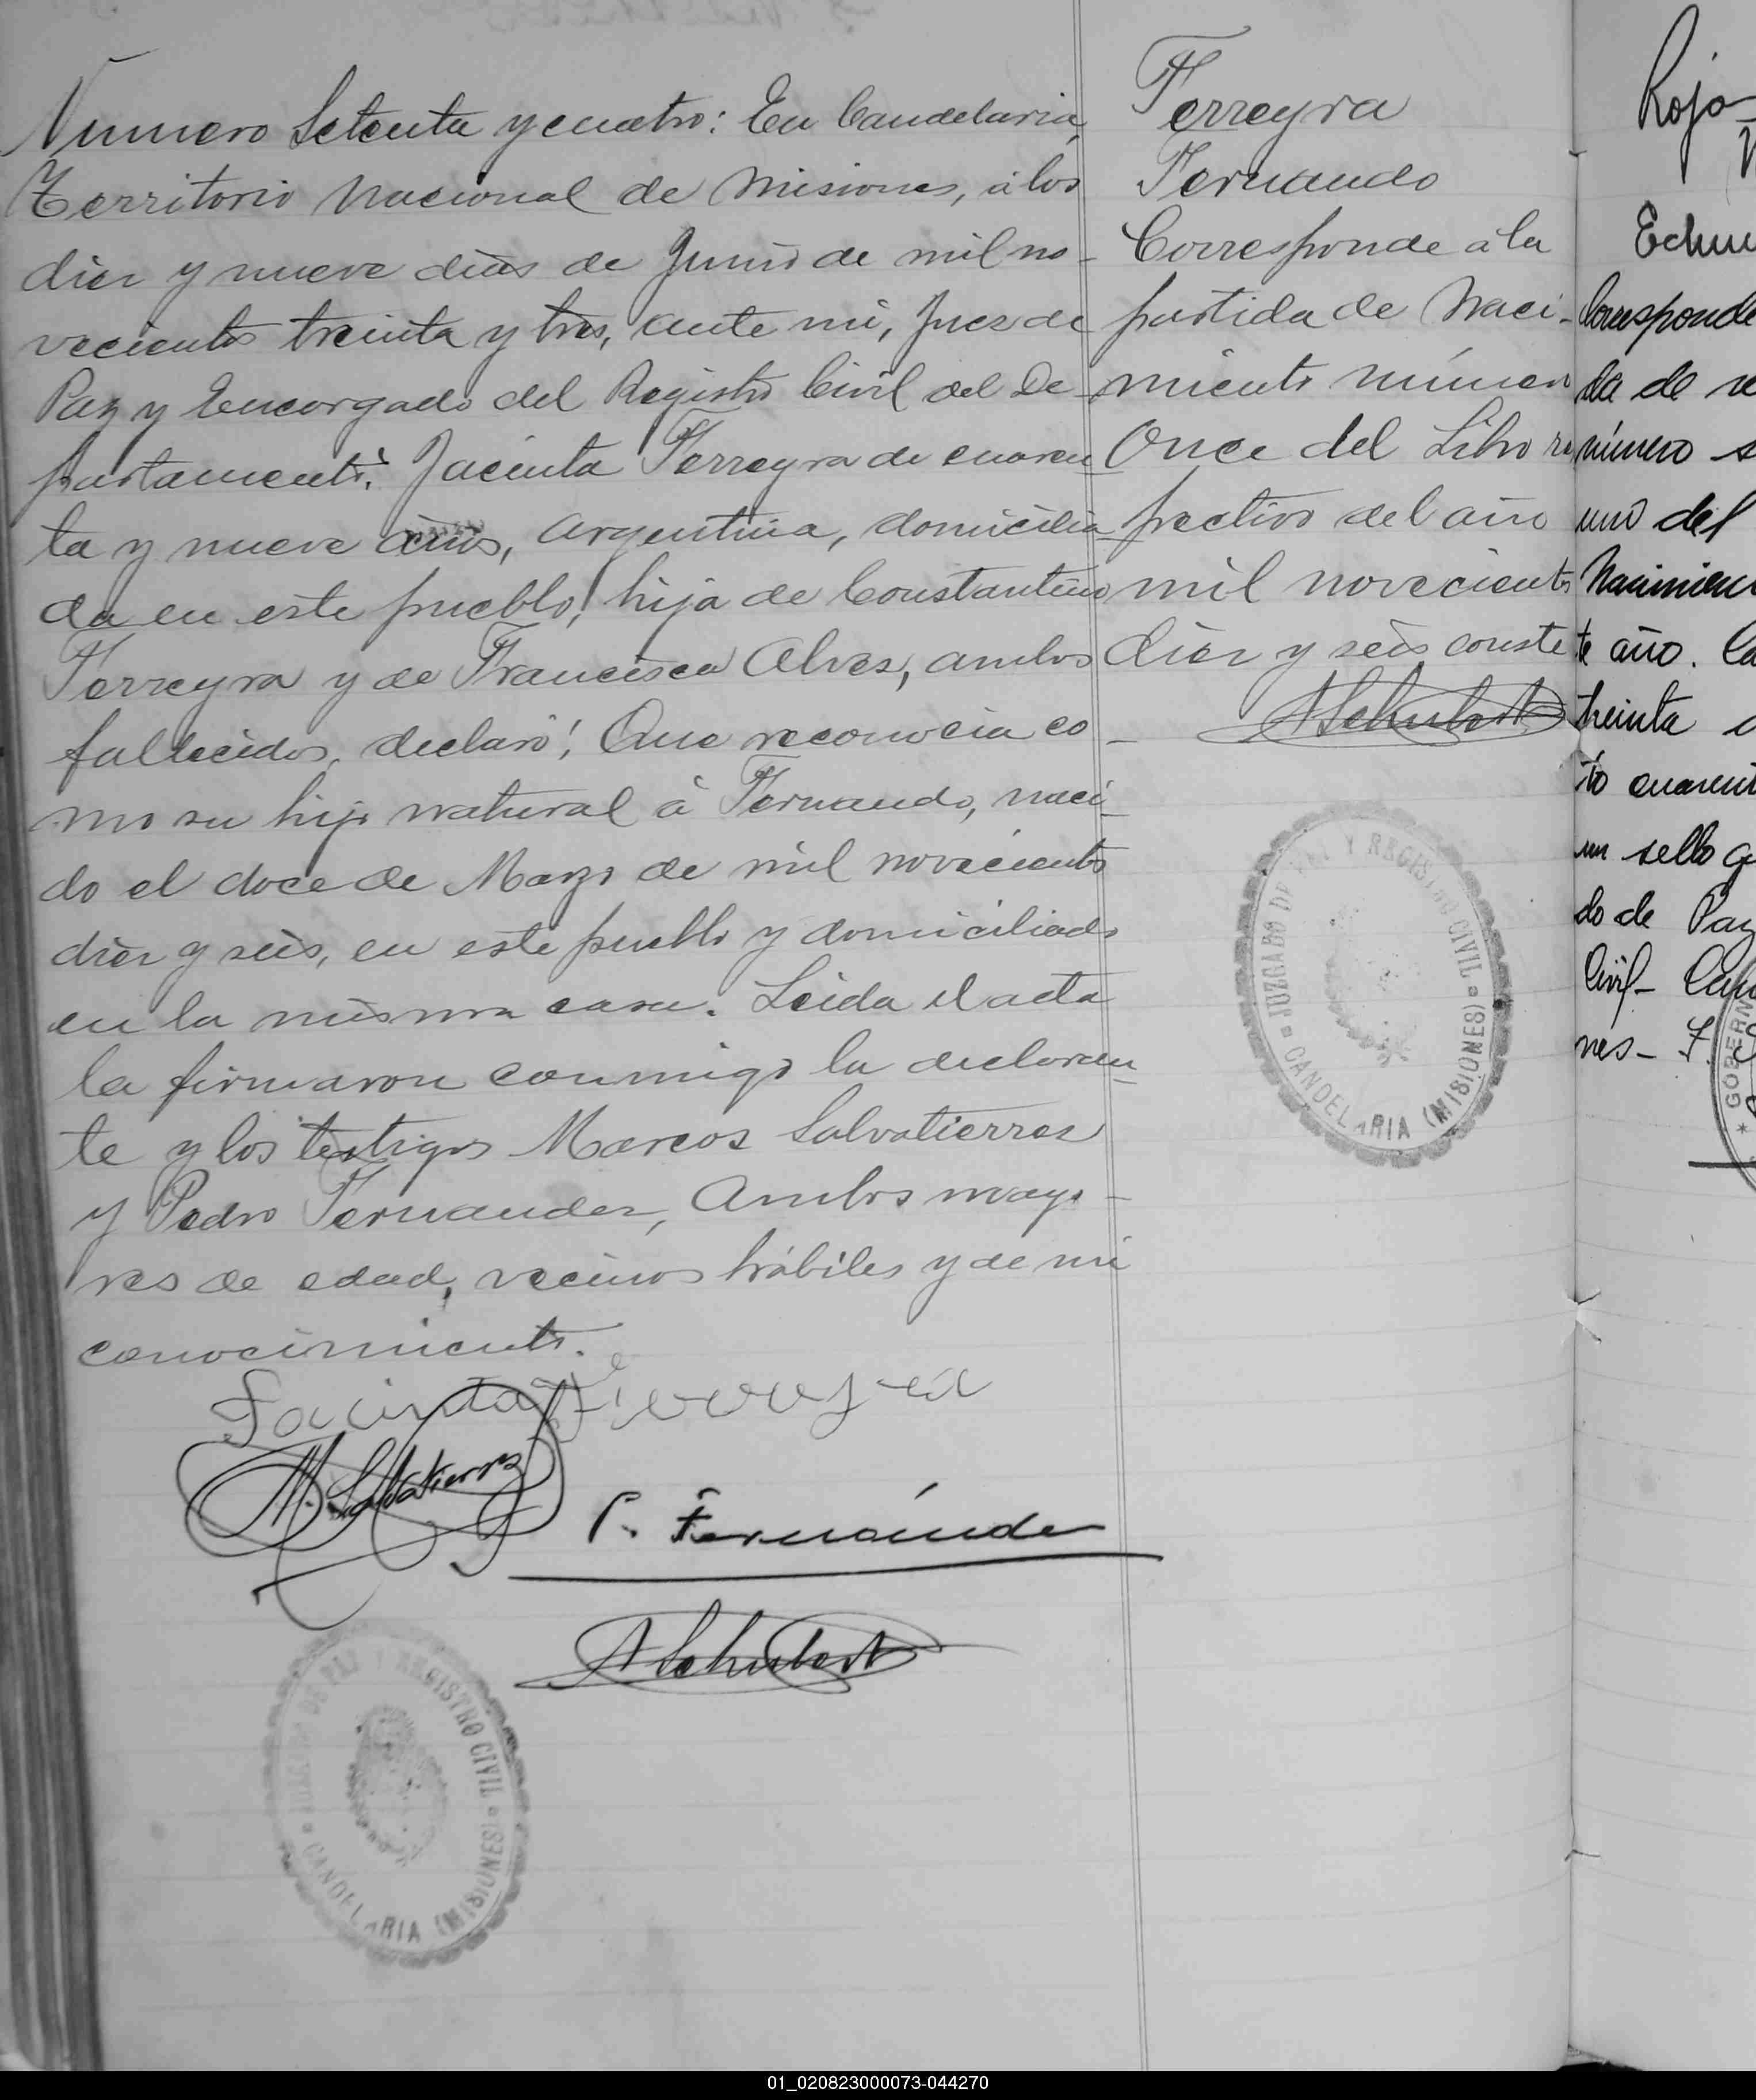 Numero Setenta y cuatro: En Candelaria,
Territorio Nacional de Misiones, á los
diez y nueve dias de Junio de mil no-
vecientos treinta y tres, ante mi, Juez de
Paz y Encargado del Registro Civil del De-
partamento: Jacinta Ferreyra de cuaren
ta y nueve años, argentina, domicilia
da en este pueblo, hija de Constantino
Ferreyra y de Francisca Alves, ambos
fallecidos, declaró: Que reconocia co-
mo su hijo natural á Fernando, naci-
do el doce de Marzo de mil novecientos
diez y seis, en este pueblo y domiciliado
en la misma casa. Leida el acta
la firmaron conmigo la declaran-
te y los testigos Marcos Salvatierra
y Pedro Fernandez, Ambos mayo-
res de edad, vecinos hábiles y de mi
conocimiento.
Jacinta Ferreyra
M. Salvatierra
P. Fernández
A Schubert
JUZGADO DE PAZ Y REGISTRO CIVIL
CANDELARIA (MISIONES)
Ferreyra
Fernando
Corresponde á la
partida de Naci-
miento número
Once del Libro res
pectivo del año
mil novecientos
diez y seis conste
A Schubert
JUZGADO DE PAZ Y REGISTRO CIVIL
CANDELARIA (MISIONES)
Rojo
Corresponde
da de
número
uno del
Nacimien
te año.
treinta
to cuarent
un sello
do de Paz
Civil-
nes-
GOBERN
01_020823000073-044270